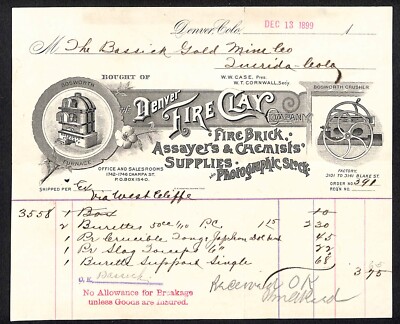 Denver, Colo. DEC 13 1899 1
M The Bassick Gold Mine Co
Querida - Colo
BOUGHT OF
W.W. CASE, Pres.
W.T. CORNWALL, Secy.
BOSWORTH
FURNACE
THE Denver
FIRE CLAY
COMPANY
BOSWORTH CRUSHER
FIRE BRICK,
ASSAYER'S & CHEMISTS'
SUPPLIES
AND PHOTOGRAPHIC STOCK.
OFFICE AND SALESROOMS
1742-1746 CHAMPA ST.
P.O. BOX 1540.
FACTORY:
3101 TO 3151 BLAKE ST.
ORDER NO. 391
REQN. NO.
SHIPPED PER Ex
Via West Cliffe
3558 1 Box 10
2 Burettes 50cc 1/10 P.C. 1 15 2 30
1 Pr Crucible Tongs 45
1 Pr 22
1 Burette Support Single 68
3 75
O.K.
Bassick
Received OK
No Allowance for Breakage
unless Goods are Insured.